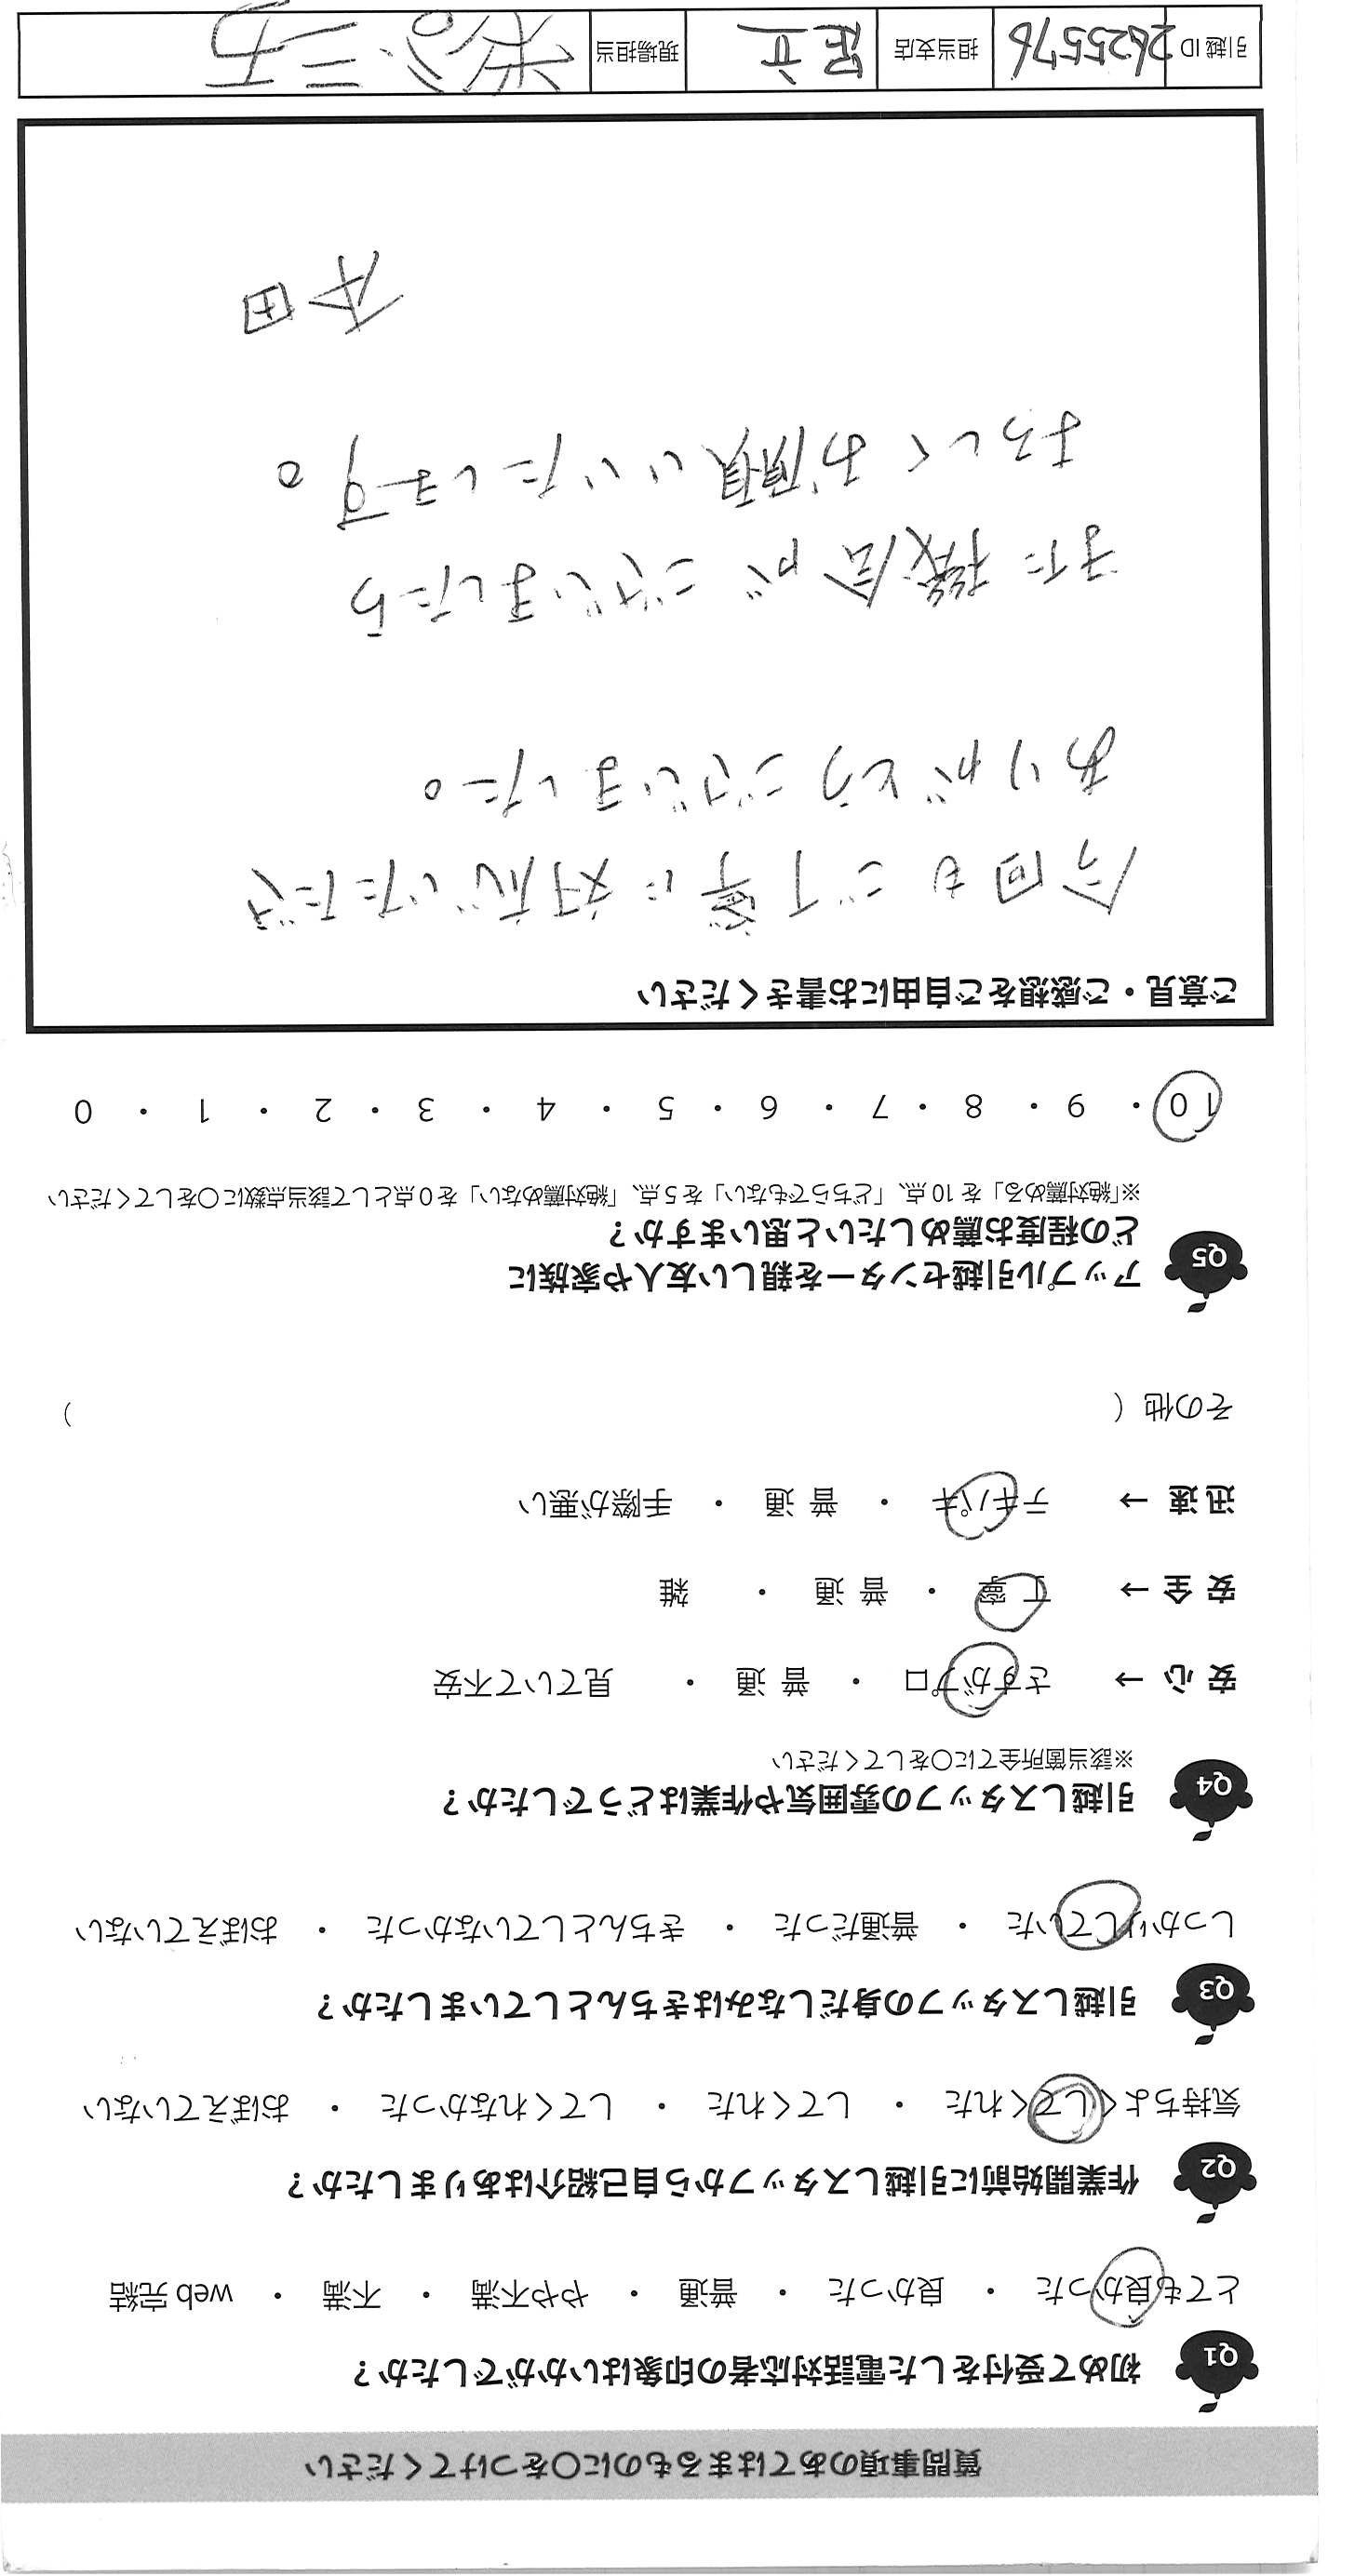 質問事項のあてはまるものに○をつけてください
Q1 初めて受付をした電話対応者の印象はいかがでしたか？
とても良かった ・ 良かった ・ 普通 ・ やや不満 ・ 不満 ・ web 完結
Q2 作業開始前に引越しスタッフから自己紹介はありましたか？
気持ちよくしてくれた ・ してくれた ・ してくれなかった ・ おぼえていない
Q3 引越しスタッフの身だしなみはきちんとしていましたか？
しっかりしていた ・ 普通だった ・ きちんとしていなかった ・ おぼえていない
Q4 引越しスタッフの雰囲気や作業はどうでしたか？
※該当箇所全てに○をしてください
安 心 → さすがプロ ・ 普 通 ・ 見ていて不安
安 全 → 丁 寧 ・ 普 通 ・ 雑
迅 速 → テキパキ ・ 普 通 ・ 手際が悪い
その他 （ ）
Q5 アップル引越センターを親しい友人や家族に
どの程度お薦めしたいと思いますか？
※「絶対薦める」を 10 点、「どちらでもない」を 5 点、「絶対薦めない」を 0 点として該当点数に○をしてください
10 ・ 9 ・ 8 ・ 7 ・ 6 ・ 5 ・ 4 ・ 3 ・ 2 ・ 1 ・ 0
ご意見・ご感想をご自由にお書きください
今回もご丁寧に対応いただき
ありがとうございました。
また機会がございましたら
よろしくお願いいたします。
本田
引越 ID 2625576 担当支店 足立 現場担当